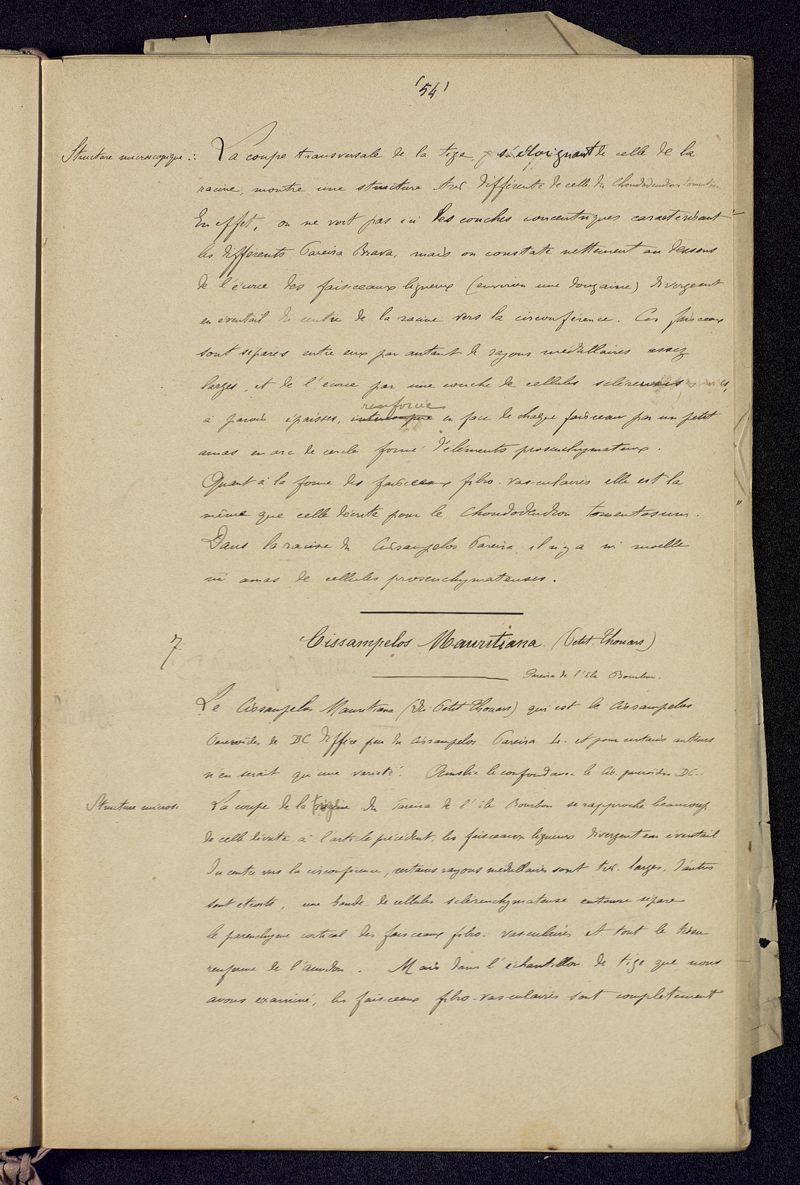 (54)
Structure microscopique : La coupe transversale de la tige s'éloignant de celle de la
racine, montre une structure très différente de celle du Chondodendron tomentosum
En effet, on ne voit pas ici les couches concentriques caractérisant
les différents Pareira Brava, mais on constate nettement au dessous
de l'écorce des faisceaux ligneux (environ une douzaine) divergeant
en éventail du centre de la racine vers la circonférence. Ces faisceaux
sont séparés entre eux par autant de rayons médullaires assez
larges, et de l'écorce par une couche de cellules
renforcée
à parois épaisses, interrompue en face de chaque faisceau par un petit
amas en arc de cercle formé d'éléments prosenchymateux.
Quant à la forme des faisceaux fibro-vasculaires elle est la
même que celle décrite pour le Chondodendron tomentosum.
Dans la racine du Cissampelos Pareira il n'y a ni moelle
ni amas de cellules prosenchymateuses.
7 Cissampelos Mauritiana (Petit Thouars)
Pareira de l'île Bourbon.
Le Cissampelos Mauritiana (Du Petit Thouars) qui est le Cissampelos
Pareiroides de DC diffère peu du Cissampelos Pareira L. et pour certains auteurs
n'en serait qu'une variété. Ainslie le confond avec le Cis. pareroides DC.
Structure micros. La coupe de la du Pareira de l'île Bourbon se rapproche beaucoup
de celle décrite à l'article précédent, les faisceaux ligneux divergent en éventail
du centre vers la circonférence, certains rayons médullaires sont très larges, d'autres
sont étroits, une bande de cellules sclérenchymateuse entourée sépare
le parenchyme cortical des faisceaux fibro-vasculaires et tout le tissu
renferme de l'amidon. Mais dans l'échantillon de tige que nous
avons examiné, les faisceaux fibro-vasculaires sont complètement